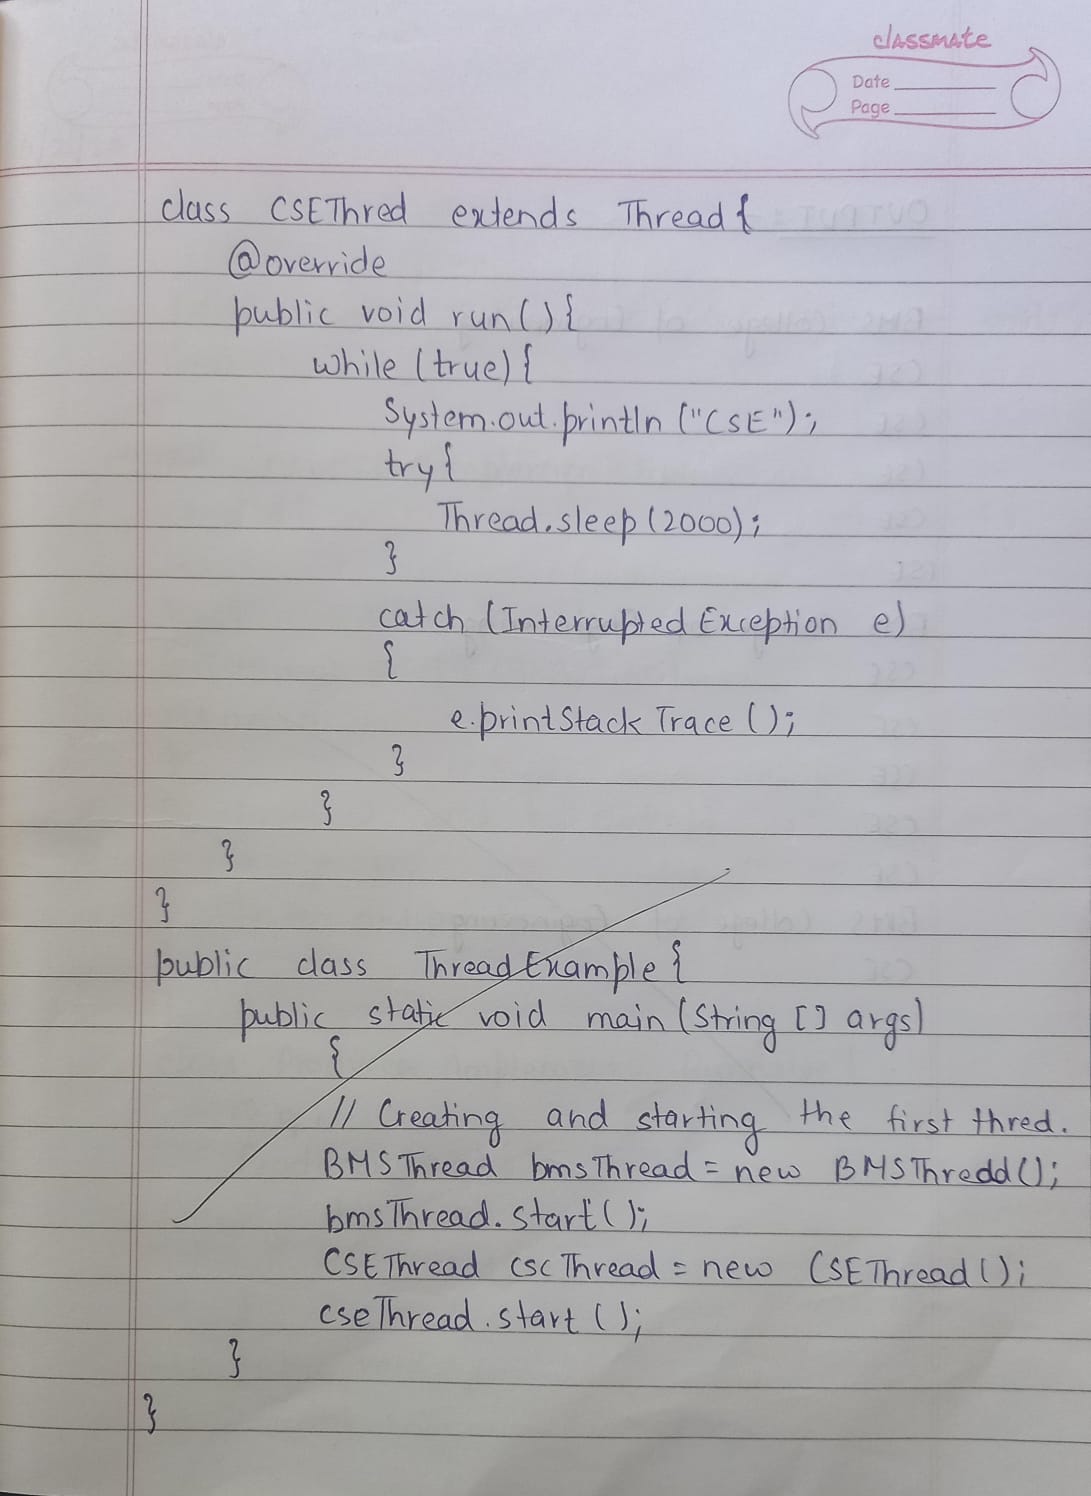 classmate
Date
Page
class CSEThred extends Thread{
@override
public void run(){
while (true){
System.out.println ("CSE");
try{
Thread.sleep(2000);
}
catch (Interrupted Exception e)
{
e.printStackTrace();
}
}
}
}
public class ThreadExample{
public static void main(String [] args)
{
// Creating and starting the first thred.
BMSThread bmsThread = new BMSThredd();
bmsThread.start();
CSEThread cscThread = new CSEThread();
cseThread.start();
}
}